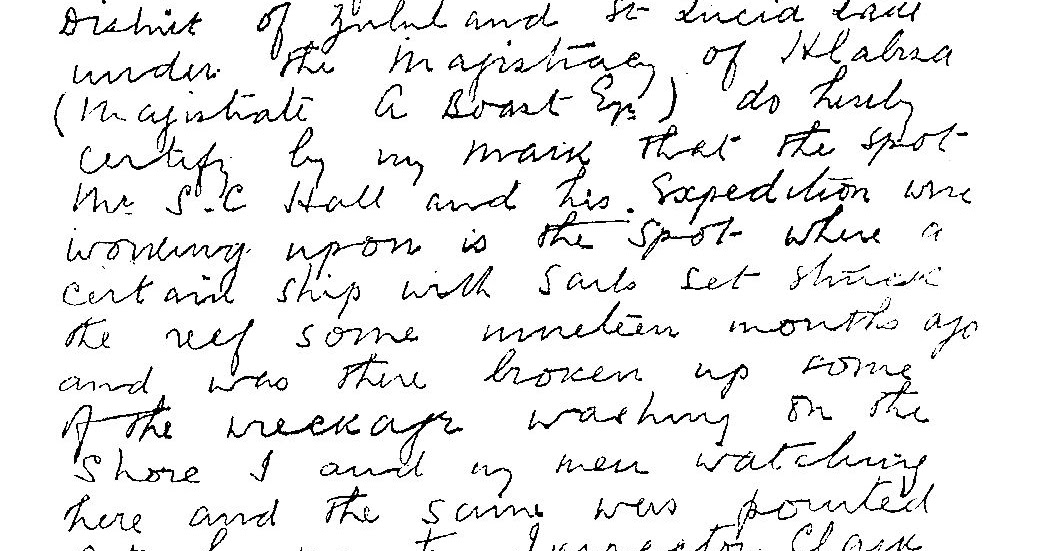 District of Zululand and St Lucia Lake
under the Magistracy of Hlabisa
(Magistrate A Boast Esqr) do hereby
certify by my mark that the spot
Mr S.C Hall and his Expedition were
working upon is the spot where a
certain ship with Sails set struck
the reef some nineteen months ago
and was there broken up some
of the wreckage washing on the
Shore I and my men watching
here and the same was pointed
by me to Inspector Clark